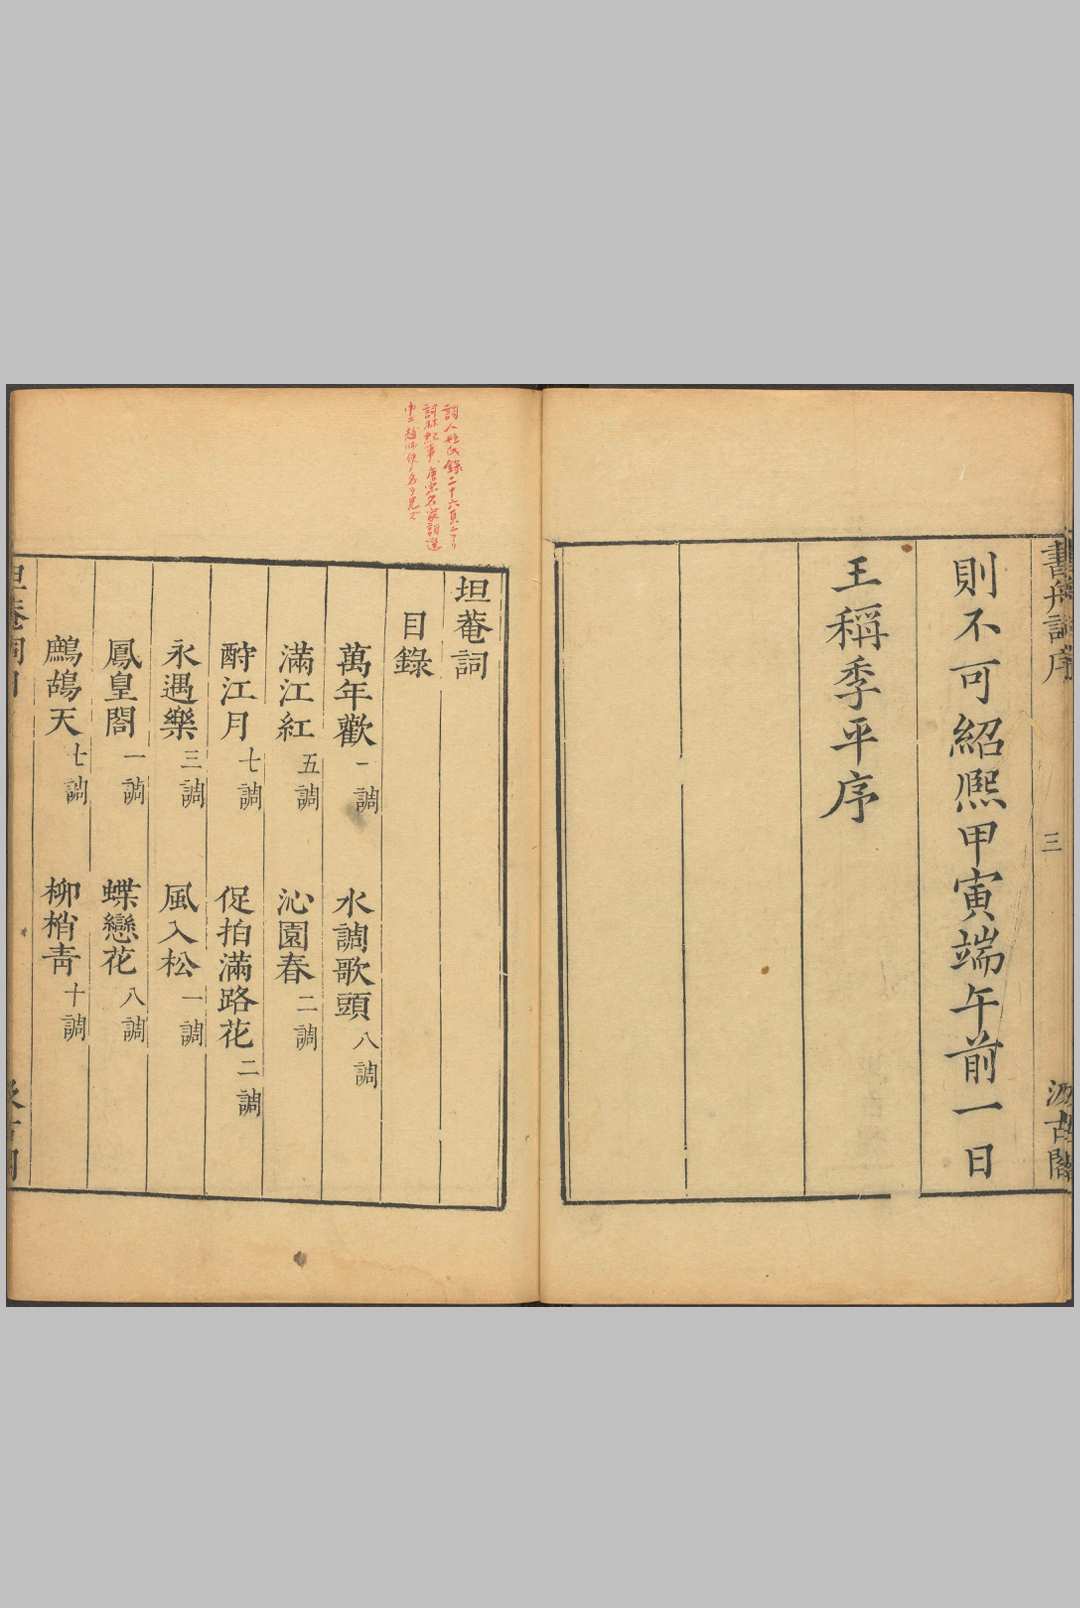 書舟詞序
三
汲古閣
則不可紹熙甲寅端午前一日
王稱季平序
詞人姓氏錄二十六頁
詞林紀事、唐宋名家詞選
坦菴詞
目錄
萬年歡一調
水調歌頭八調
滿江紅五調
沁園春二調
酹江月七調
促拍滿路花二調
永遇樂三調
風入松一調
鳳皇閣一調
蝶戀花八調
鷓鴣天七調
柳梢青十調
坦菴詞目
汲古閣